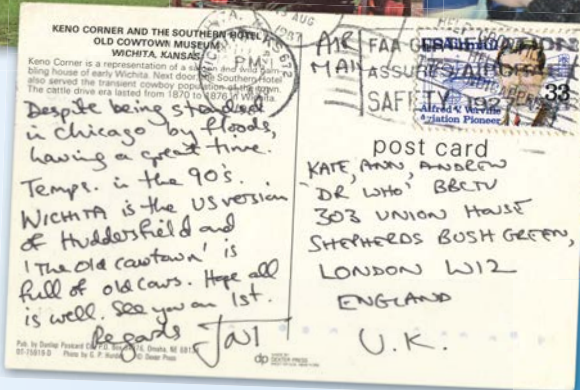 KENO CORNER AND THE SOUTHERN HOTEL
OLD COWTOWN MUSEUM
WICHITA, KANSAS
Keno Corner is a representation of a
bling house of early Wichita. Next door, the Southern Hotel
also served the transient cowboy population of the town.
The cattle drive era lasted from 1870 to 1876 in Wichita.
Despite being stranded
in Chicago by floods,
having a great time.
Temps. in the 90's.
WICHITA is the US version
of Huddersfield and
'The Old cowtown' is
full of old cows. Hope all
is well. See you on 1st.
Regards
Pub. by Dunlap Postcard Co., P.O. Box Omaha, NE
DT-75819-D Photo by G. P. © Dexter Press
dp DEXTER PRESS
AUG
1987
PM
AIR
MAIL
FAA
ASSURES AIRCRAFT
SAFETY 1927
33
Alfred V. Verville
Aviation Pioneer
post card
KATE, ANN, ANDREW
'DR WHO' BBCTV
303 UNION HOUSE
SHEPHERDS BUSH GREEN,
LONDON W12
ENGLAND
U.K.